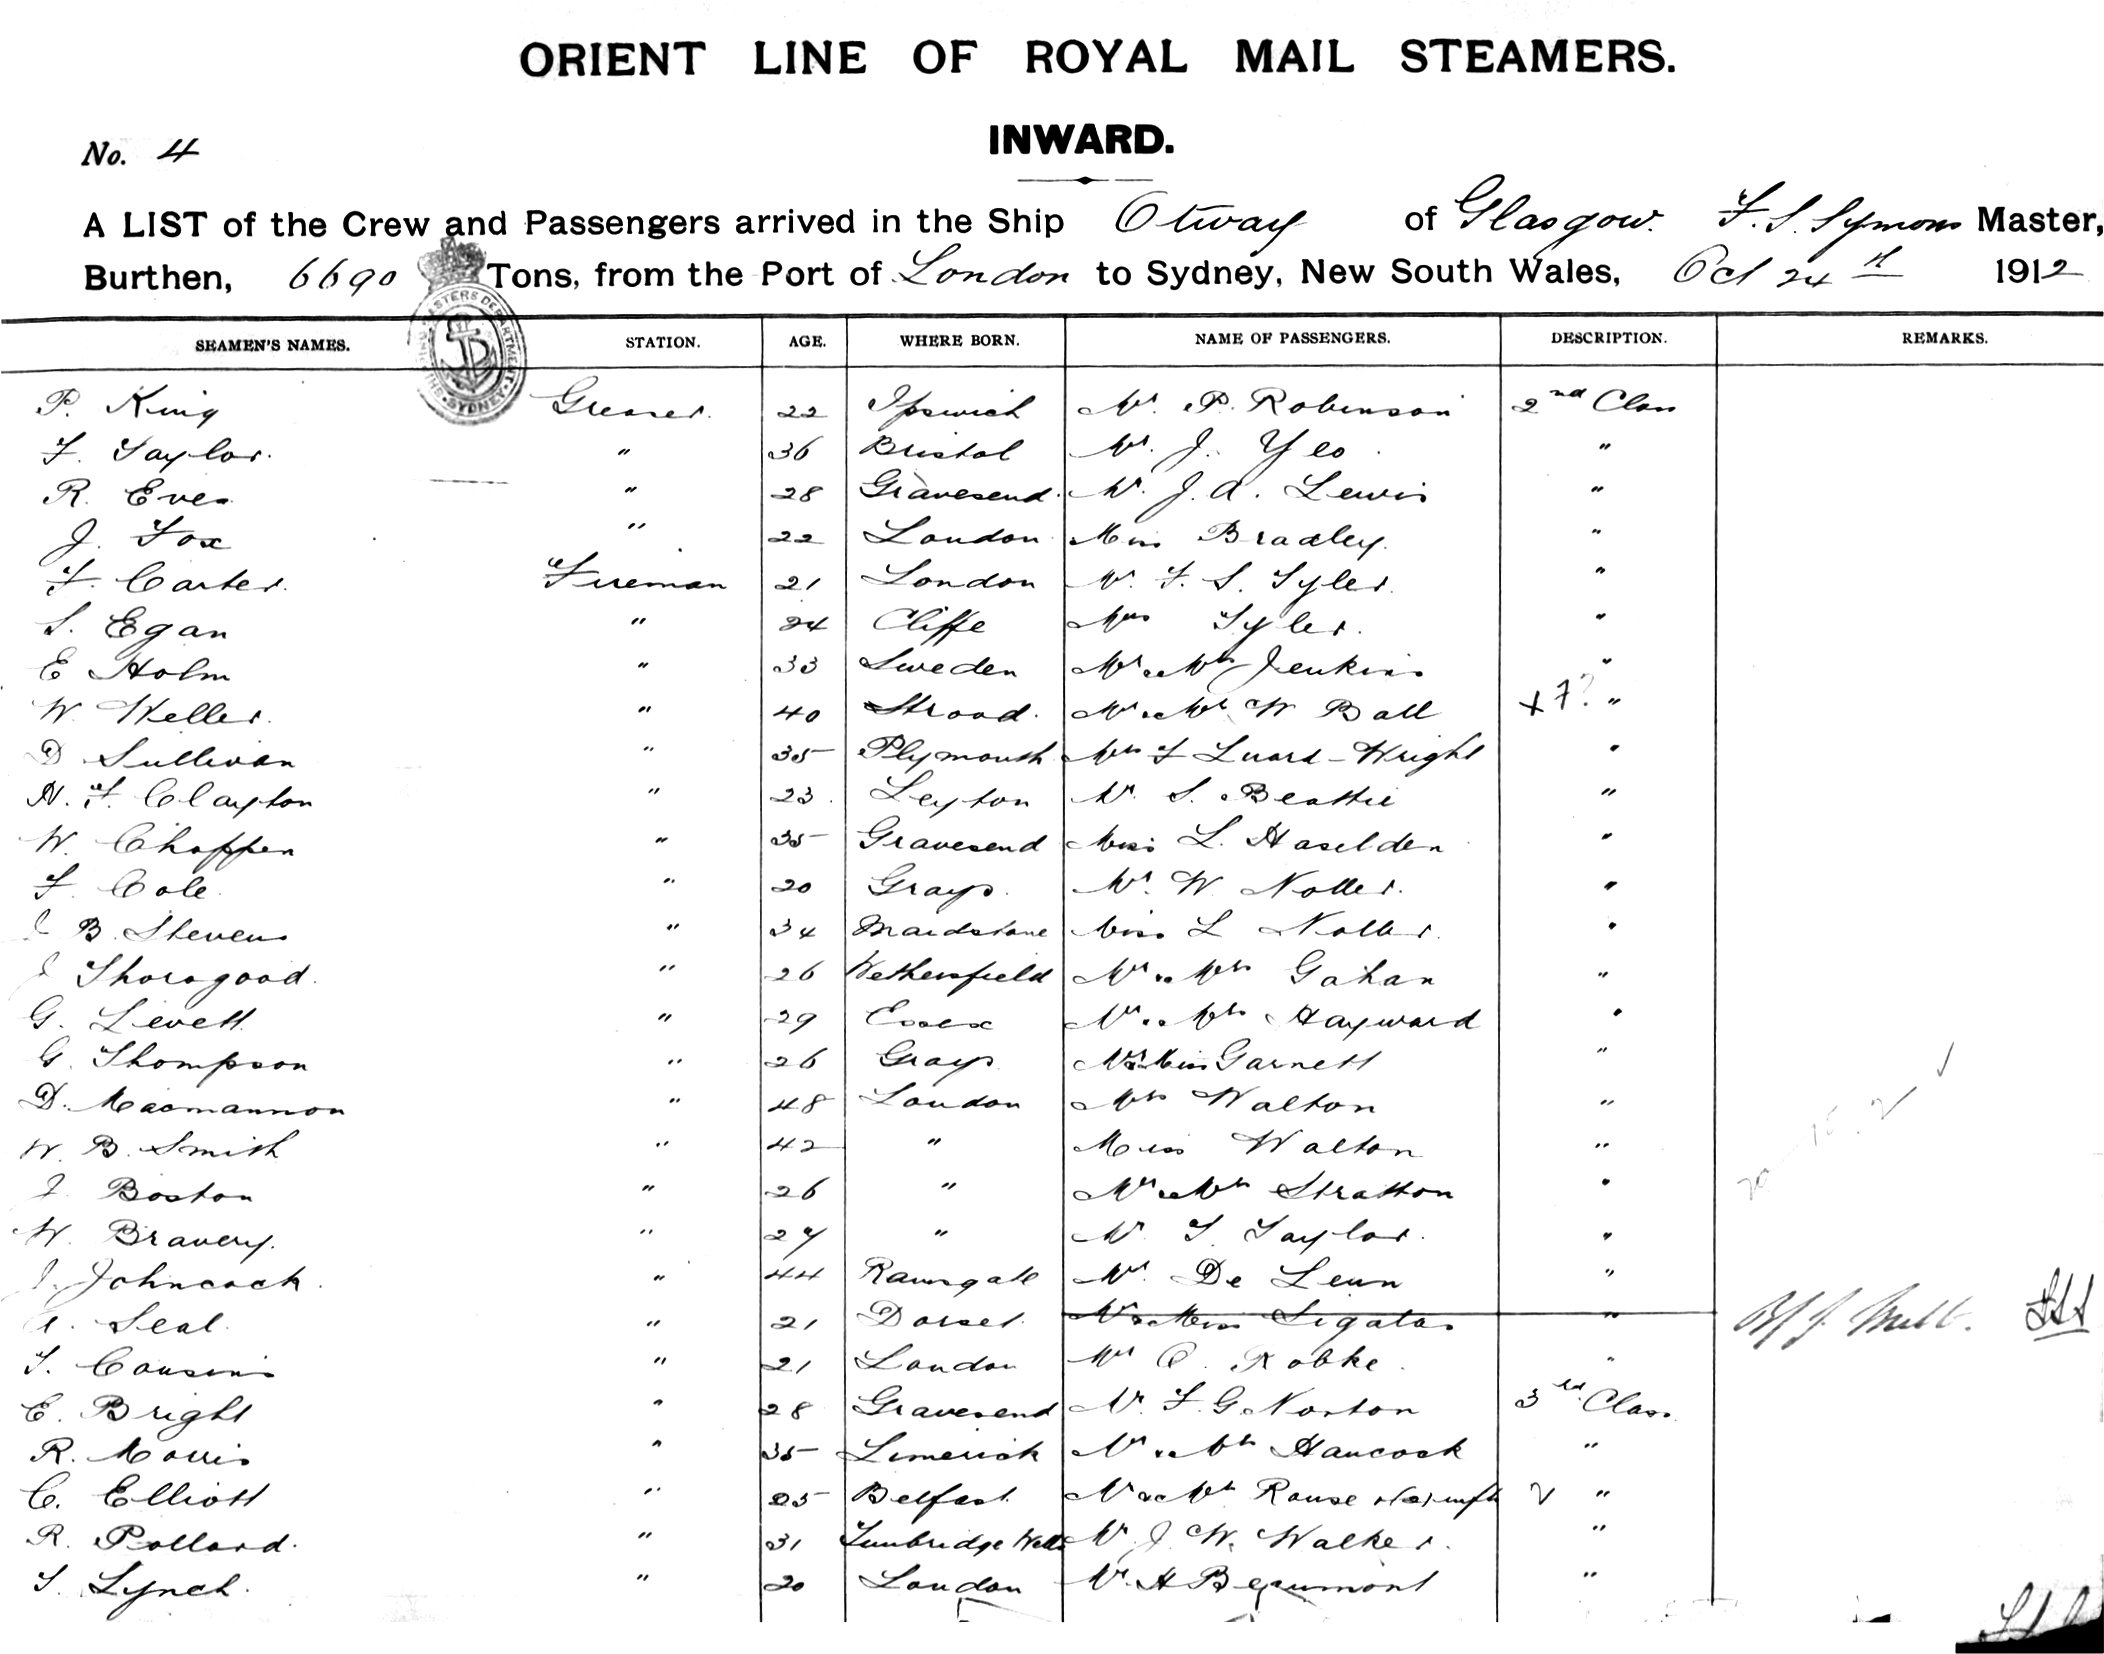 ORIENT LINE OF ROYAL MAIL STEAMERS.
INWARD.
No. 4
A LIST of the Crew and Passengers arrived in the Ship Otway of Glasgow. F. S. Symons Master,
Burthen, 6690 Tons, from the Port of London to Sydney, New South Wales, Oct 24th 1912
SEAMEN'S NAMES. STATION. AGE. WHERE BORN. NAME OF PASSENGERS. DESCRIPTION. REMARKS.
P. King Greaser. 22 Ipswich Mr. P. Robinson 2nd Class
F. Taylor. " 36 Bristol Mr. J. Yeo. "
R. Eves " 28 Gravesend. Mr. J. A. Lewis "
J. Fox " 22 London Miss Bradley. "
F. Carter. Fireman 21 London Mr. F. S. Tyler. "
S. Egan " 24 Cliffe Mrs Tyler. "
E Holm " 33 Sweden Mr & Mrs Jenkins "
W. Weller. " 40 Strood. Mr & Mrs W Ball x 7? "
D Sullivan " 35 Plymouth Mrs F Luard-Wright "
H. F. Clayton " 23 Leyton Mr. S. Beattie "
W. Chaffen " 35 Gravesend Miss L. Haselden "
F. Cole. " 20 Grays. Mr. W. Noller. "
J B. Stevens " 34 Maidstone Miss L Noller. "
J Thorogood. " 26 Wethersfield Mr & Mrs Gahan "
G. Levett " 29 Essex Mr & Mrs Hayward "
G. Thompson " 26 Grays Mr & Miss Garnett "
D. Macmannon " 48 London Mrs Walton "
W. B. Smith " 42 " Miss Walton "
J. Boston " 26 " Mr & Mrs Stratton "
W. Bravery. " 27 " Mr T. Taylor. "
J. Johncock. " 44 Ramsgate Mr. De Leun "
A. Seal. " 21 Dorset. Mr & Miss Ligatas "
T. Cousins " 21 London Mr O. Robke. "
E. Bright " 28 Gravesend Mr. F. G. Norton 3rd Class.
R. Morris " 35 Limerick Mr & Mrs Hancock "
C. Elliott " 25 Belfast Mr & Mrs Rouse "
R. Pollard. " 31 Tunbridge Wells Mr. J. W. Walker. "
T. Lynch. " 20 London Mr. H Beaumont "